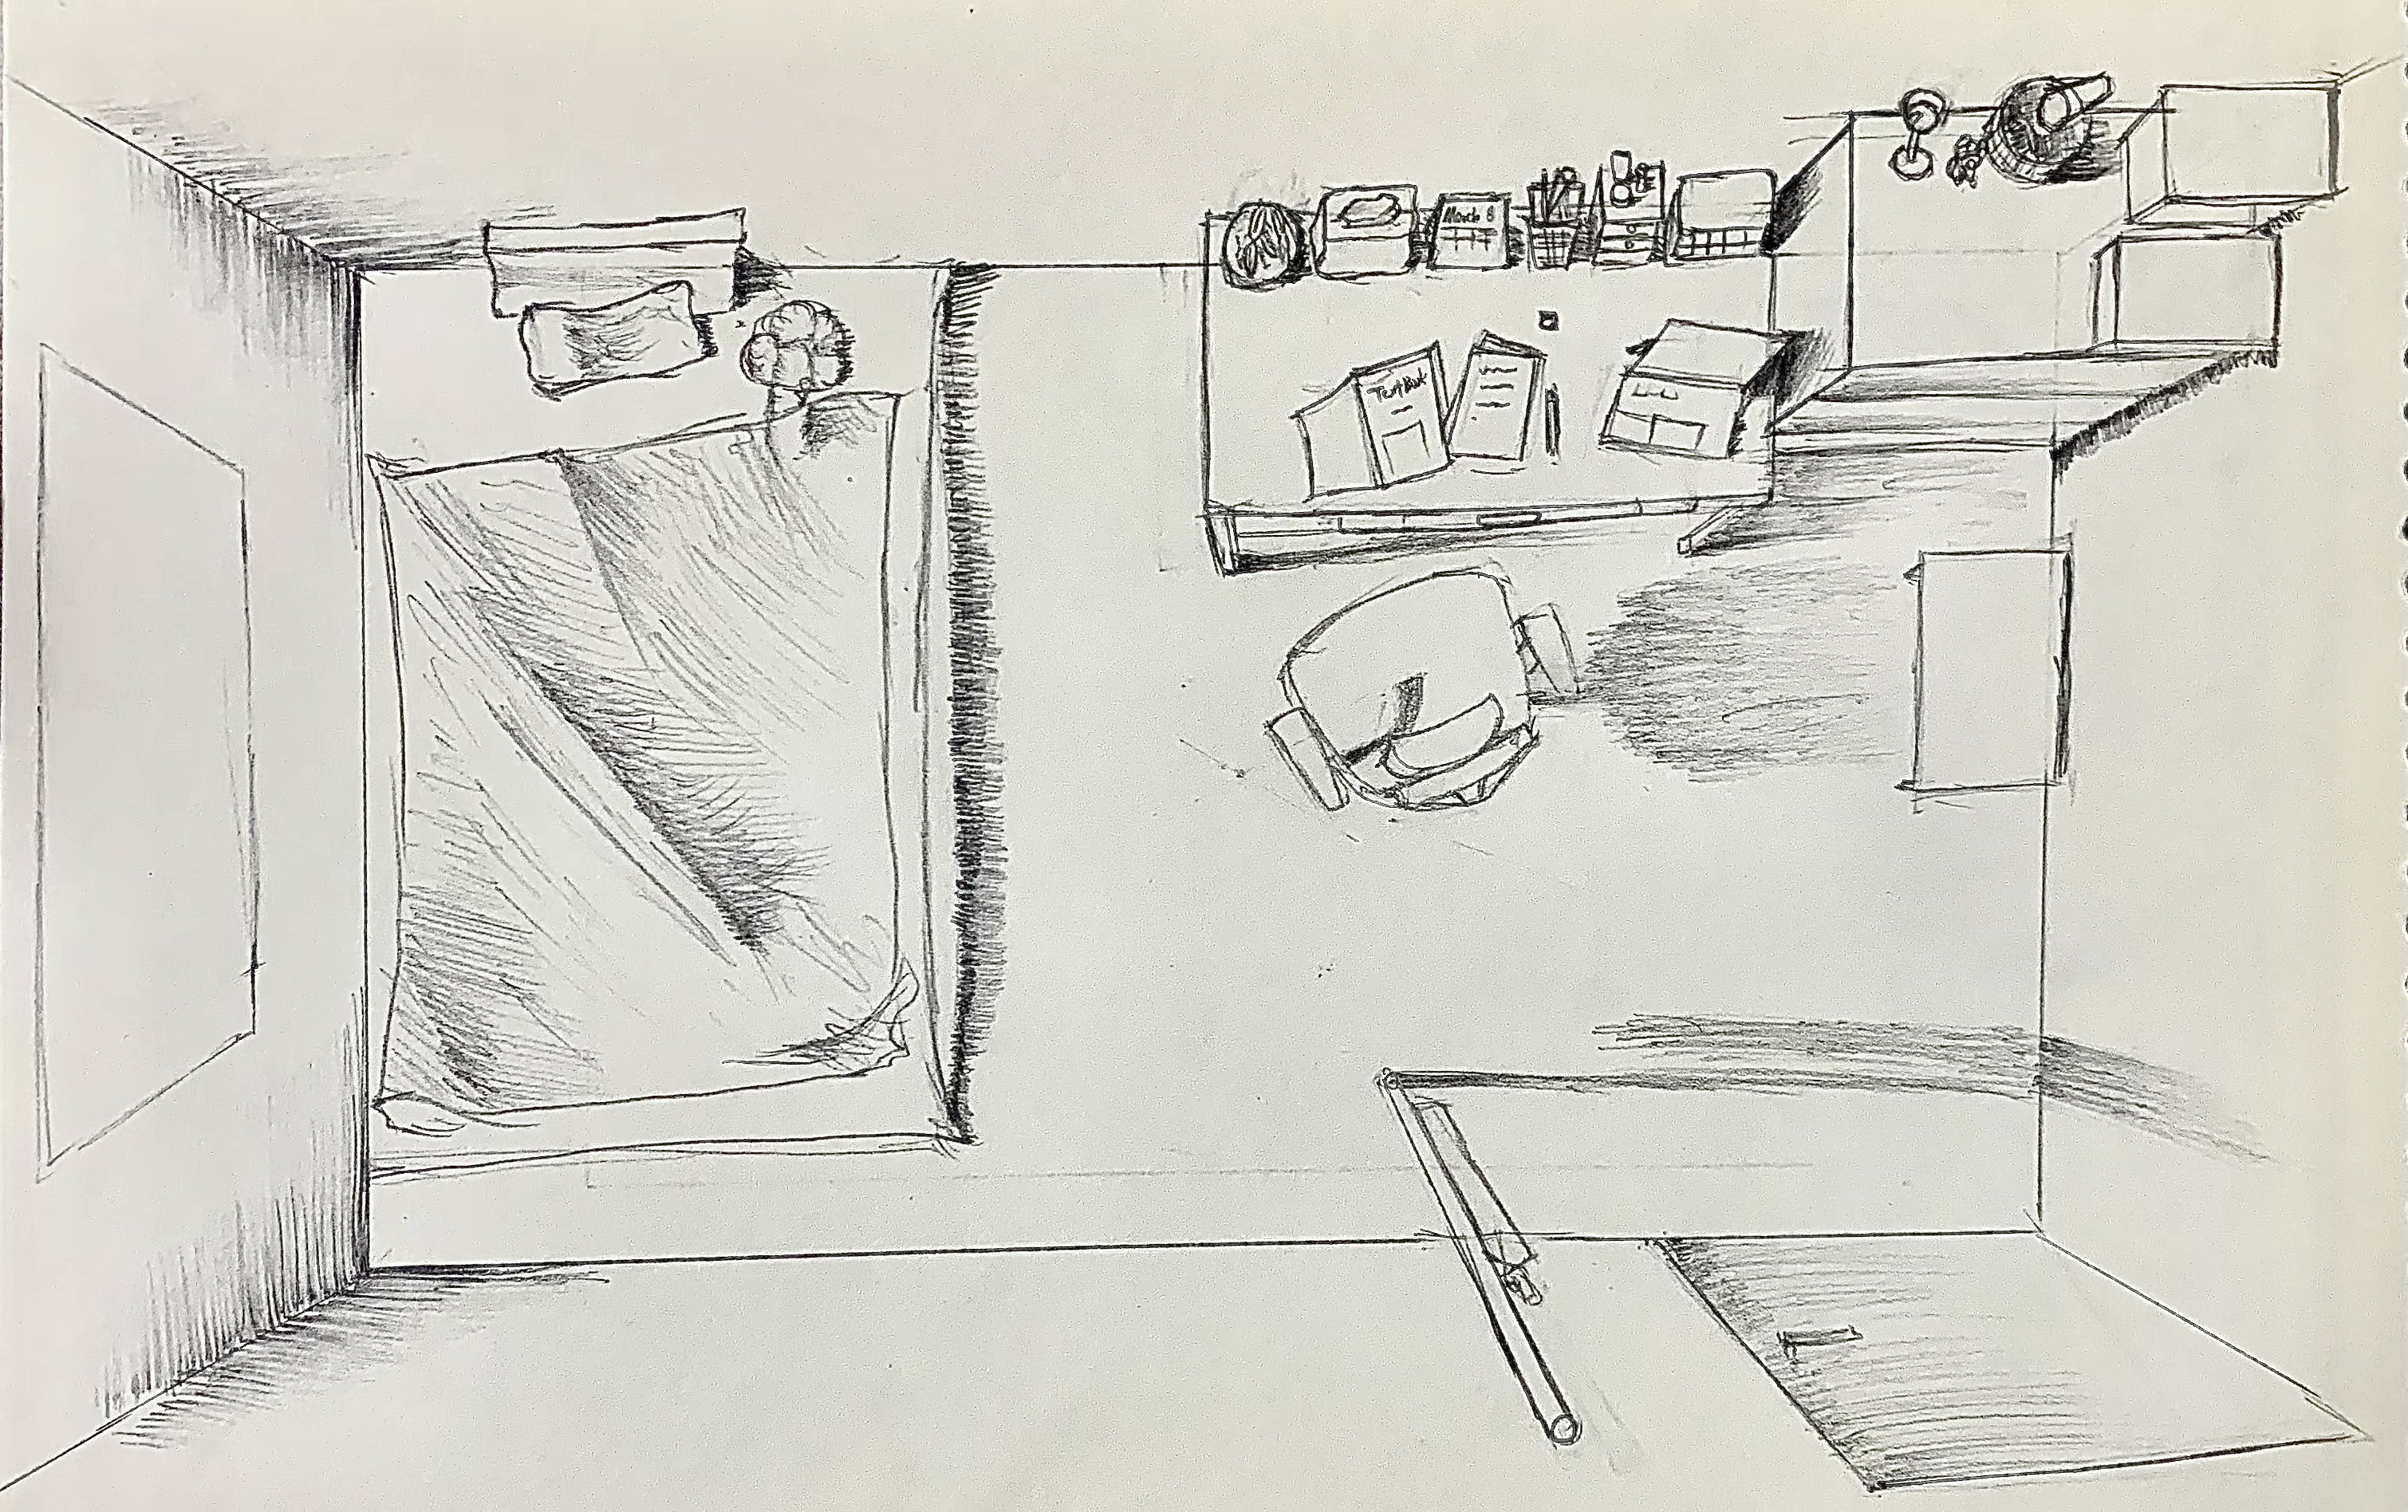 March 8
TextBook